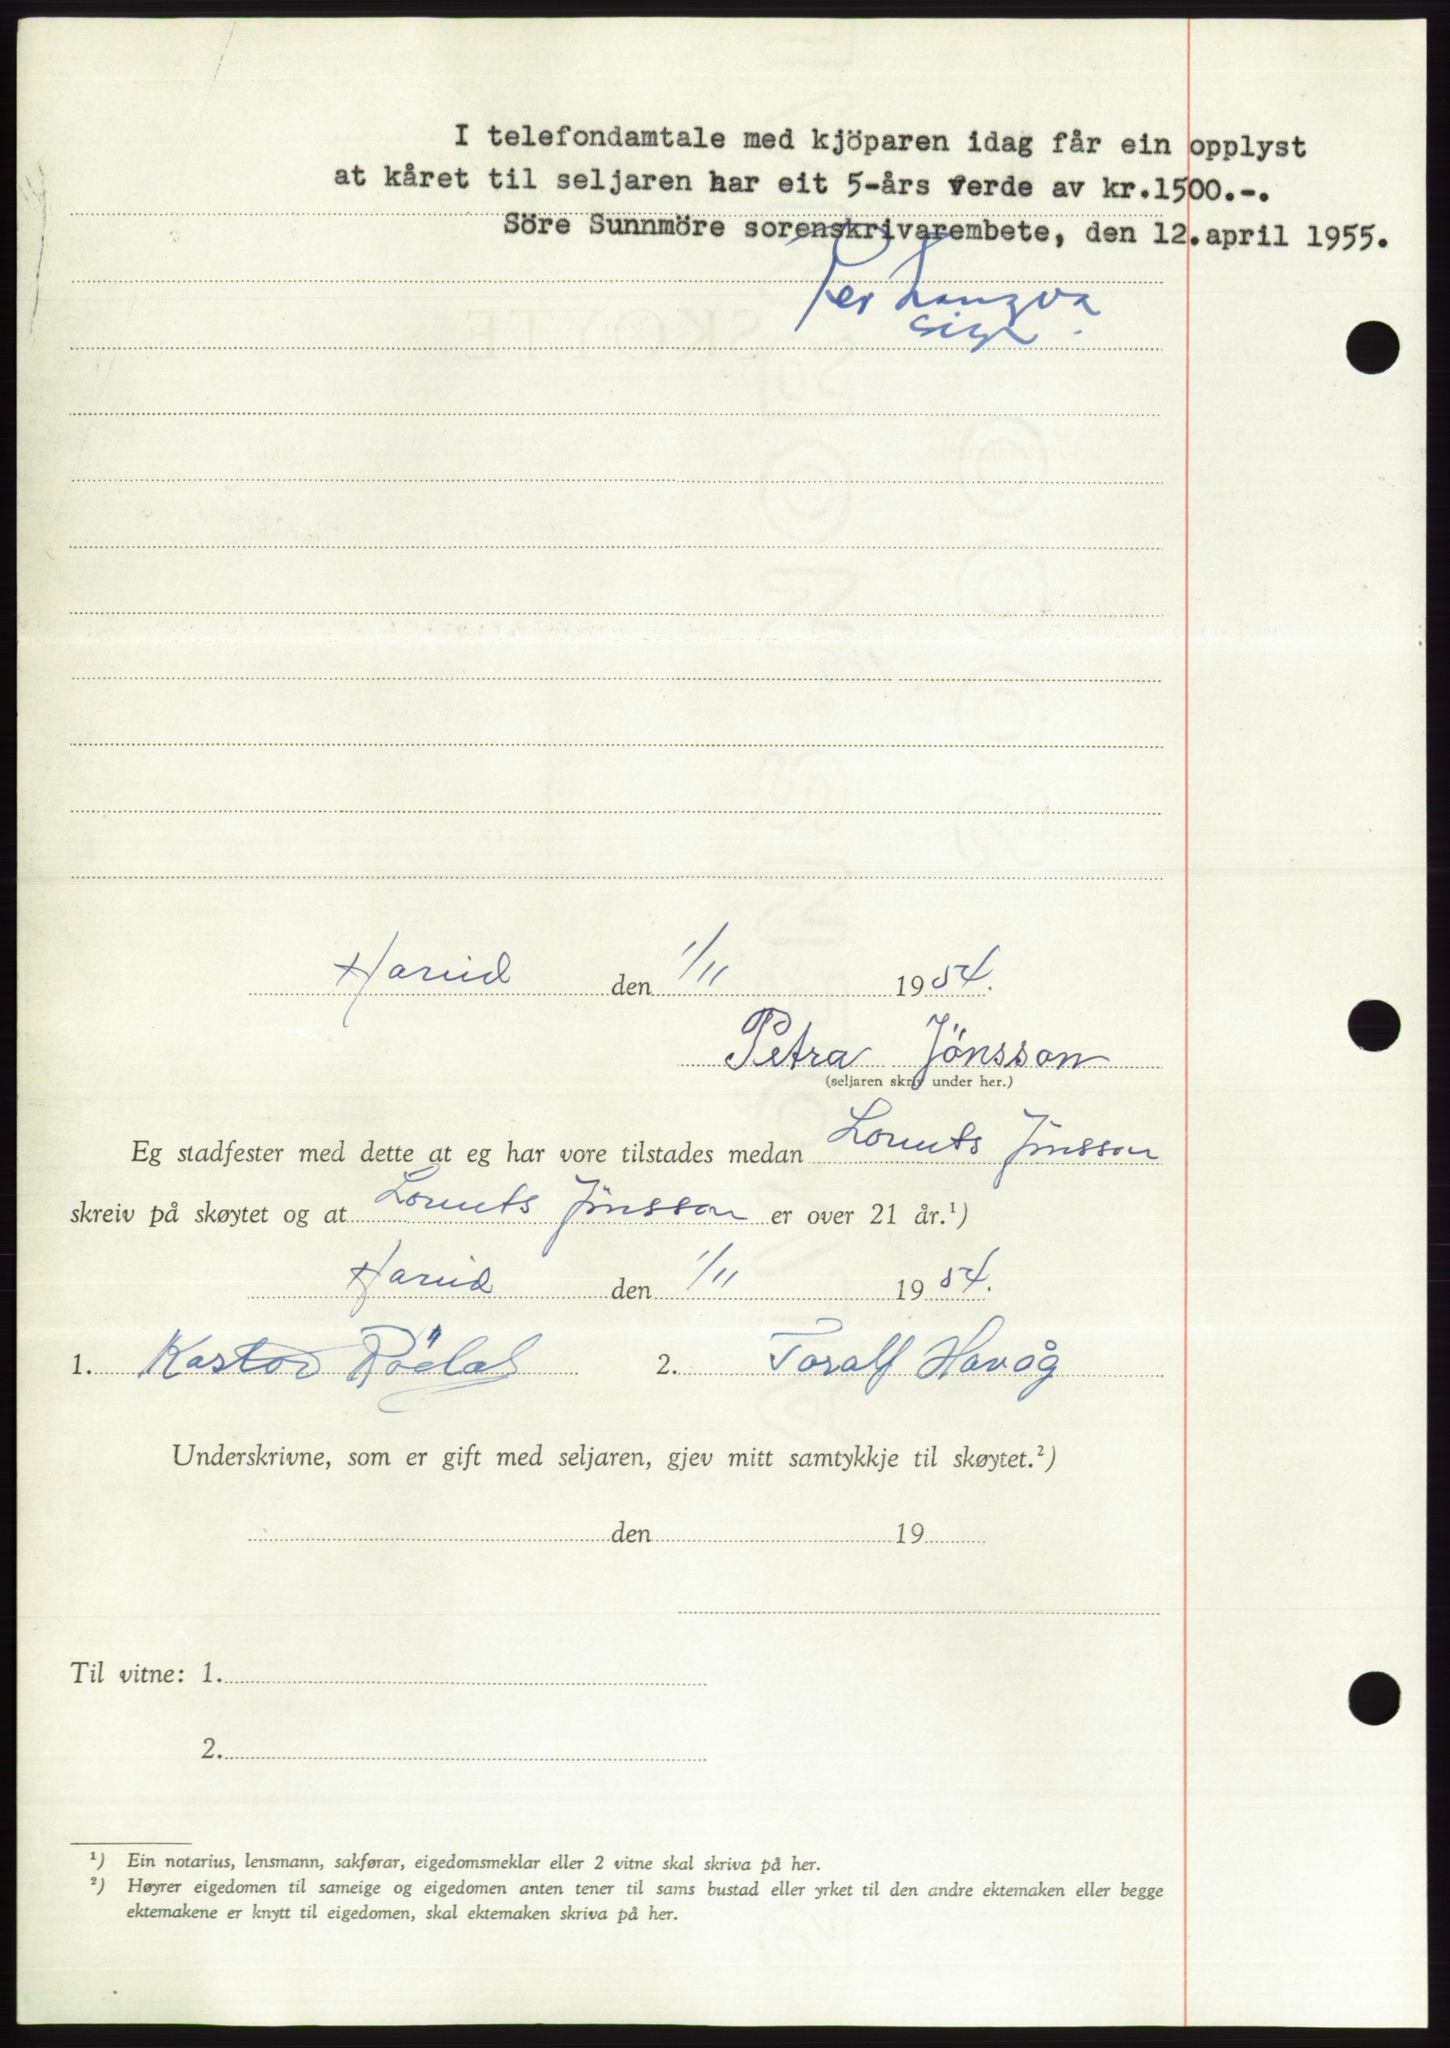 I telefondamtale med kjöparen idag får ein opplyst
at kåret til seljaren har eit 5-års verde av kr.1500.-.
Söre Sunnmöre sorenskrivarembete, den 12.april 1955.
Per
sign.
Hareid den 1/11 1954.
Petra Jönsson
(seljaren skriv under her.)
Eg stadfester med dette at eg har vore tilstades medan Lornts Jönsson
skreiv på skøytet og at Lornts Jönsson er over 21 år.¹)
Hareid den 1/11 1954.
1. Kastor Röelad 2. Toralf Havåg
Underskrivne, som er gift med seljaren, gjev mitt samtykkje til skøytet.²)
den 19
Til vitne: 1.
2.
¹) Ein notarius, lensmann, sakførar, eigedomsmeklar eller 2 vitne skal skriva på her.
²) Høyrer eigedomen til sameige og eigedomen anten tener til sams bustad eller yrket til den andre ektemaken eller begge
ektemakene er knytt til eigedomen, skal ektemaken skriva på her.